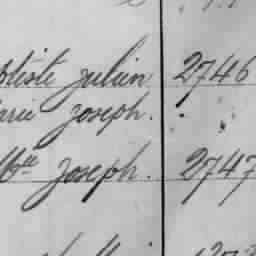 ptiste Julien 2746
arie Joseph.
Bte Joseph. 2747